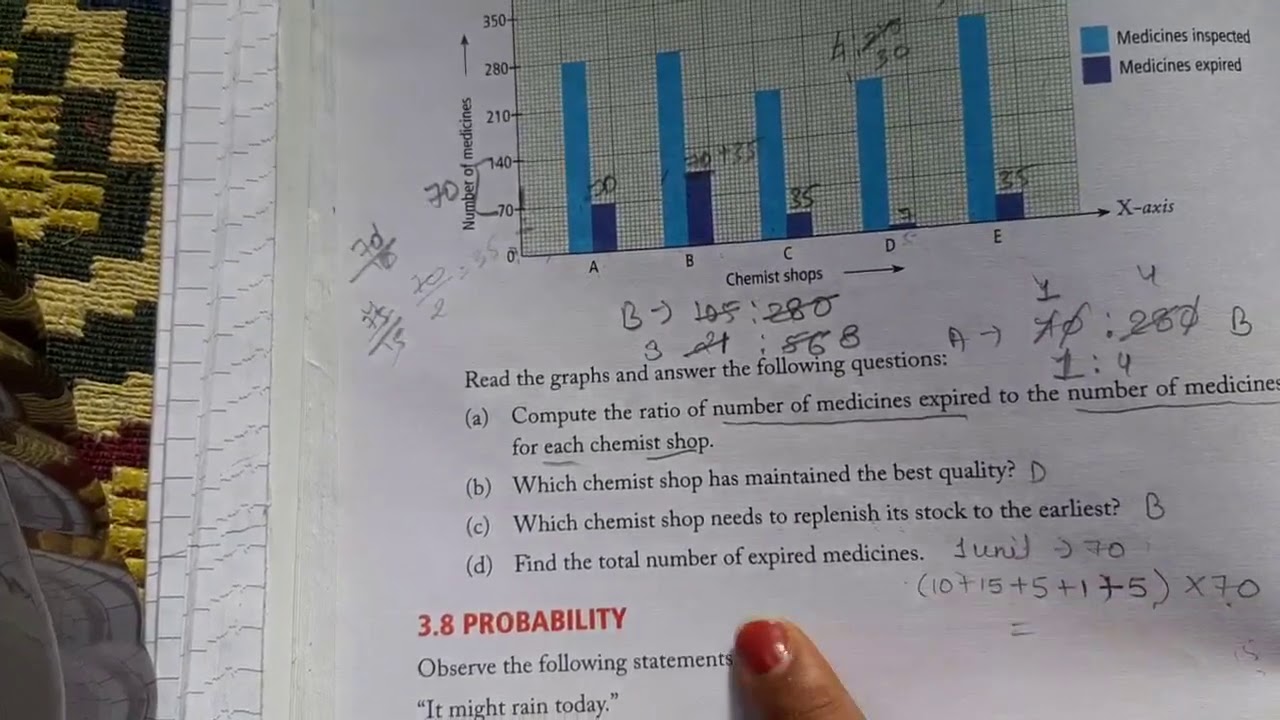 350
Medicines inspected
280
Medicines expired
210
Number of medicines
140
70
70
70
70+35
35
7
35
30
0
X-axis
A
B
C
D
E
Chemist shops
B → 105 : 280
3 21 : 56 8
A → 70 : 280 B
1 4
1 : 4
Read the graphs and answer the following questions:
(a) Compute the ratio of number of medicines expired to the number of medicines
for each chemist shop.
(b) Which chemist shop has maintained the best quality? D
(c) Which chemist shop needs to replenish its stock to the earliest? B
(d) Find the total number of expired medicines. 1 unit → 70
(10+15+5+1+5) × 70
=
3.8 PROBABILITY
Observe the following statements
"It might rain today."